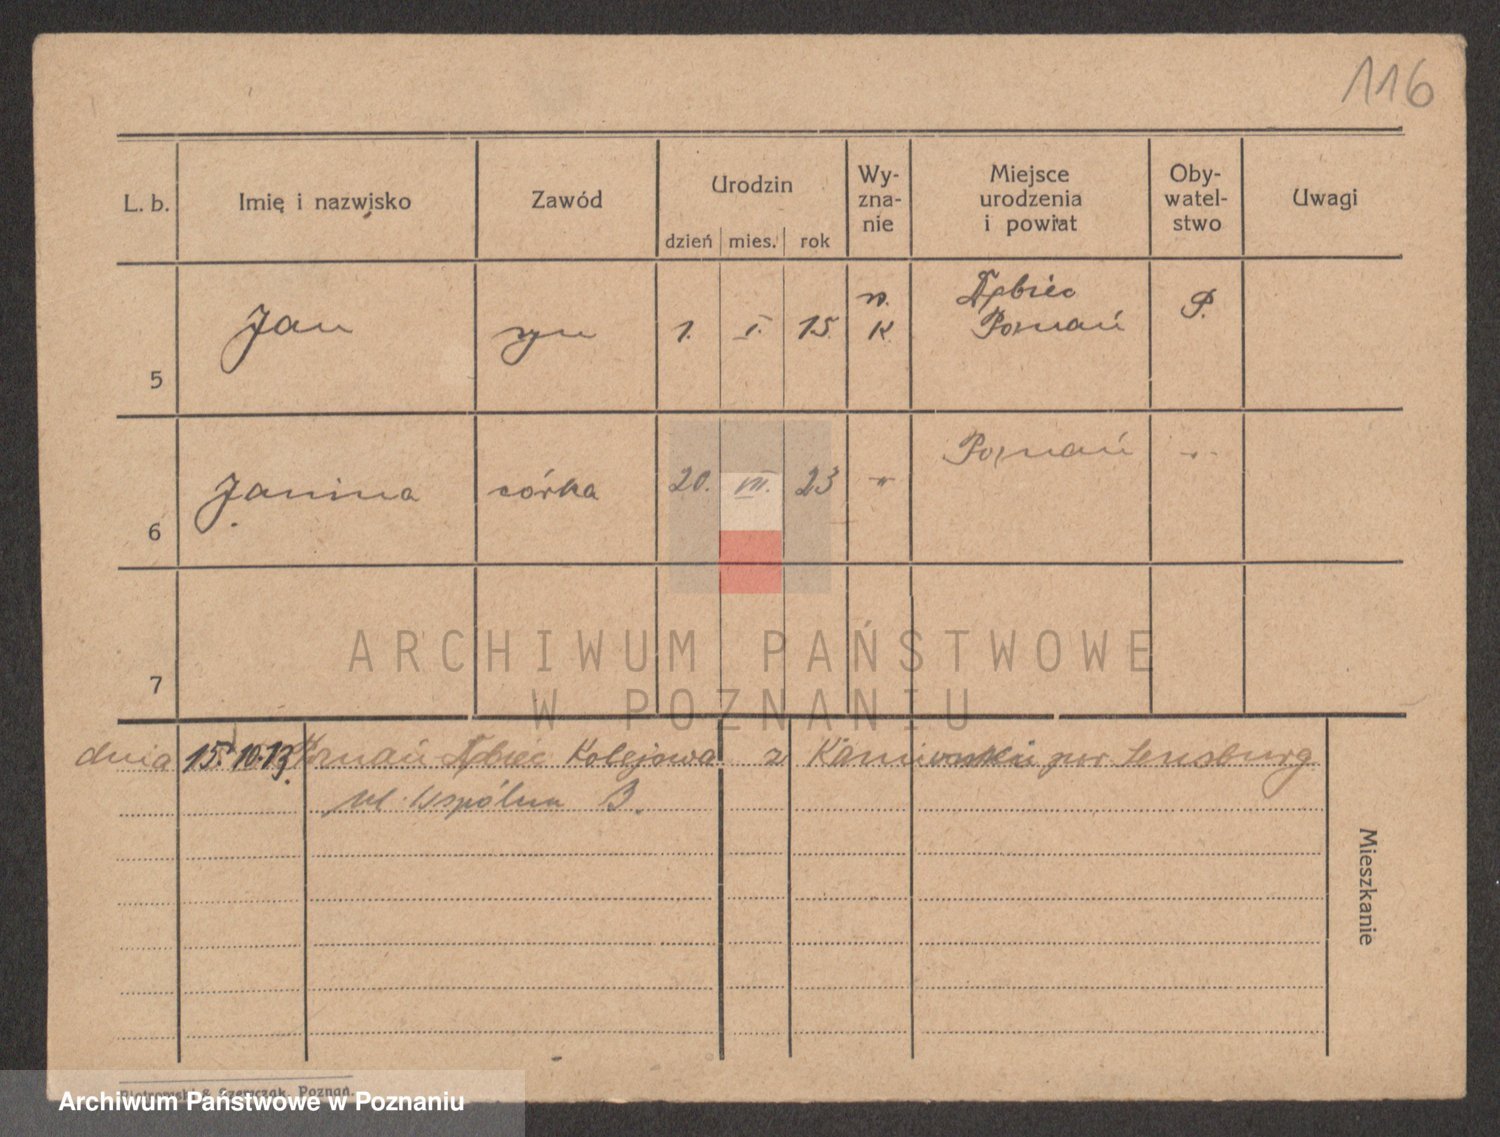 116
L. b. Imię i nazwisko Zawód Urodzin Wy-zna-nie Miejsce urodzenia i powiat Oby-watel-stwo Uwagi
dzień mies. rok
5 Jan syn 1. I. 15. r. K. Dębiec Poznań P.
6 Janina córka 20. VII. 23 " Poznań "
7
ARCHIWUM PAŃSTWOWE
W POZNANIU
dnia 15. 10. 13. Poznań Dębiec Kolejowa z pow. Sensburg
ul. Wspólna 3.
Mieszkanie
Piotrowski & Szewczak, Poznań.
Archiwum Państwowe w Poznaniu